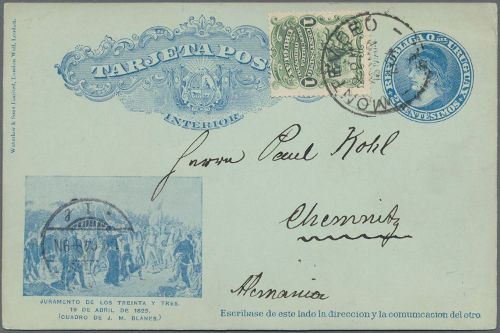 TARJETA POS
INTERIOR
Waterlow & Sons Limited, London Wall, London.
1
1
MONTEVIDEO
REPUBLICA O. DEL URUGUAY
CENTÉSIMOS
Herrn Paul Kohl
Chemnitz
Alemania
JURAMENTO DE LOS TREINTA Y TRES.
19 DE ABRIL DE 1825.
(CUADRO DE J. M. BLANES.)
Escribase de este lado la direccion y la comunicacion del otro